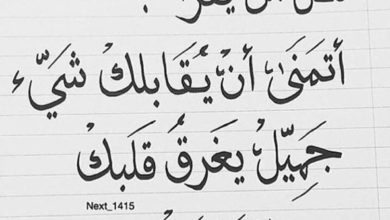 أتمنىٰ أنْ يُقَابلكْ شيَّء
جَميّلْ يغَرقُ قَلبكْ
Next_1415